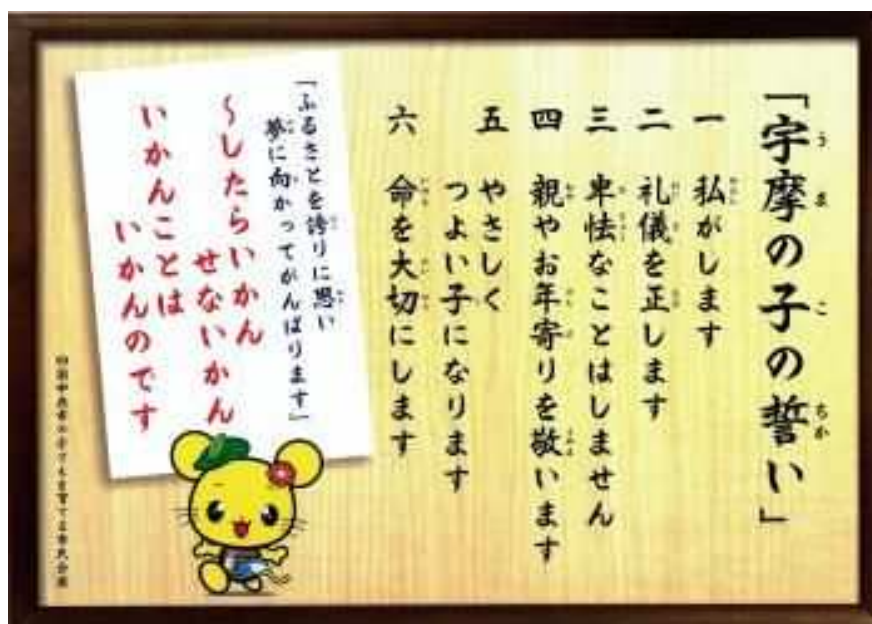 「宇摩の子の誓い」
一 私がします
二 礼儀を正します
三 卑怯なことはしません
四 親やお年寄りを敬います
五 やさしく
つよい子になります
六 命を大切にします
「ふるさとを誇りに思い
夢に向かってがんばります」
~したらいかん
せないかん
いかんことは
いかんのです
四国中央市の子どもを育てる市民会議